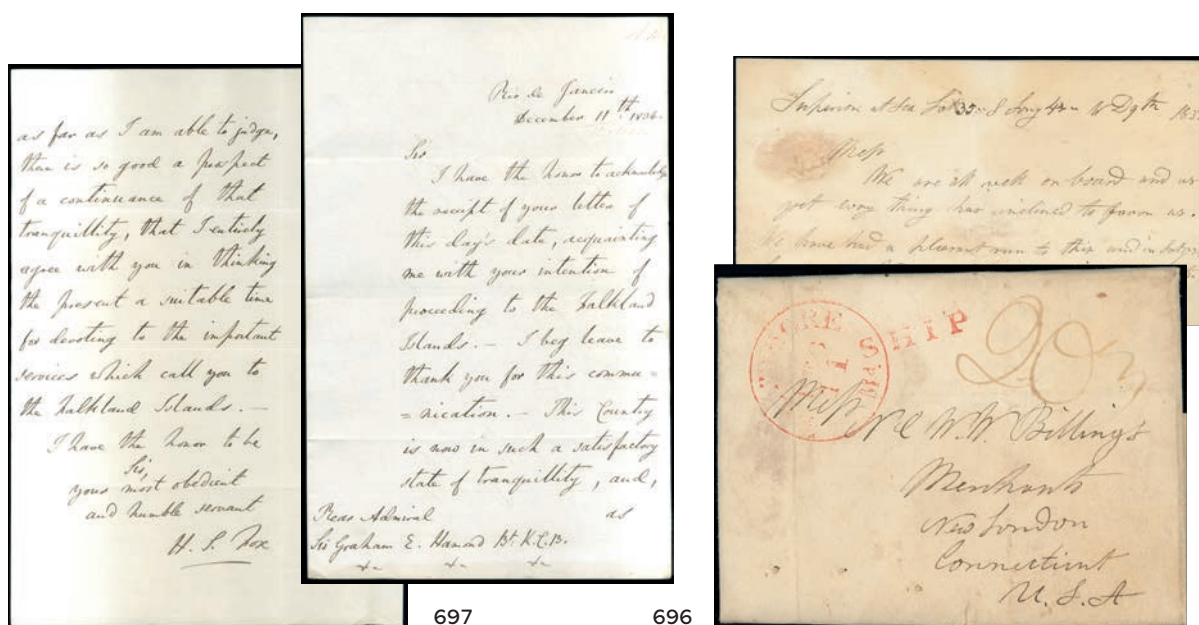 as far as I am able to judge,
there is so good a prospect
of a continuance of that
tranquillity, that I entirely
agree with you in thinking
the present a suitable time
for devoting to the important
services which call you to
the Falkland Islands. —
I have the honor to be
Sir,
your most obedient
and humble servant
H. S. Fox
Rio de Janeiro
December 11th
Sir
I have the honor to acknowledge
the receipt of your letter of
this day's date, acquainting
me with your intention of
proceeding to the Falkland
Islands. — I beg leave to
thank you for this commu=
=nication. — This Country
is now in such a satisfactory
state of tranquillity, and,
as
Rear Admiral
Sir Graham E. Hamond Bt. K.C.B.
697
at Sea Lat 35 S Long 43 W D 9th 183
Mess
We are all well on board and as
yet every thing has inclined to favor us
We have had a pleasant run to this and in
MORE
MD
SHIP
20
Mess N & W.W. Billings
Merchants
New London
Connecticut
U.S.A
696